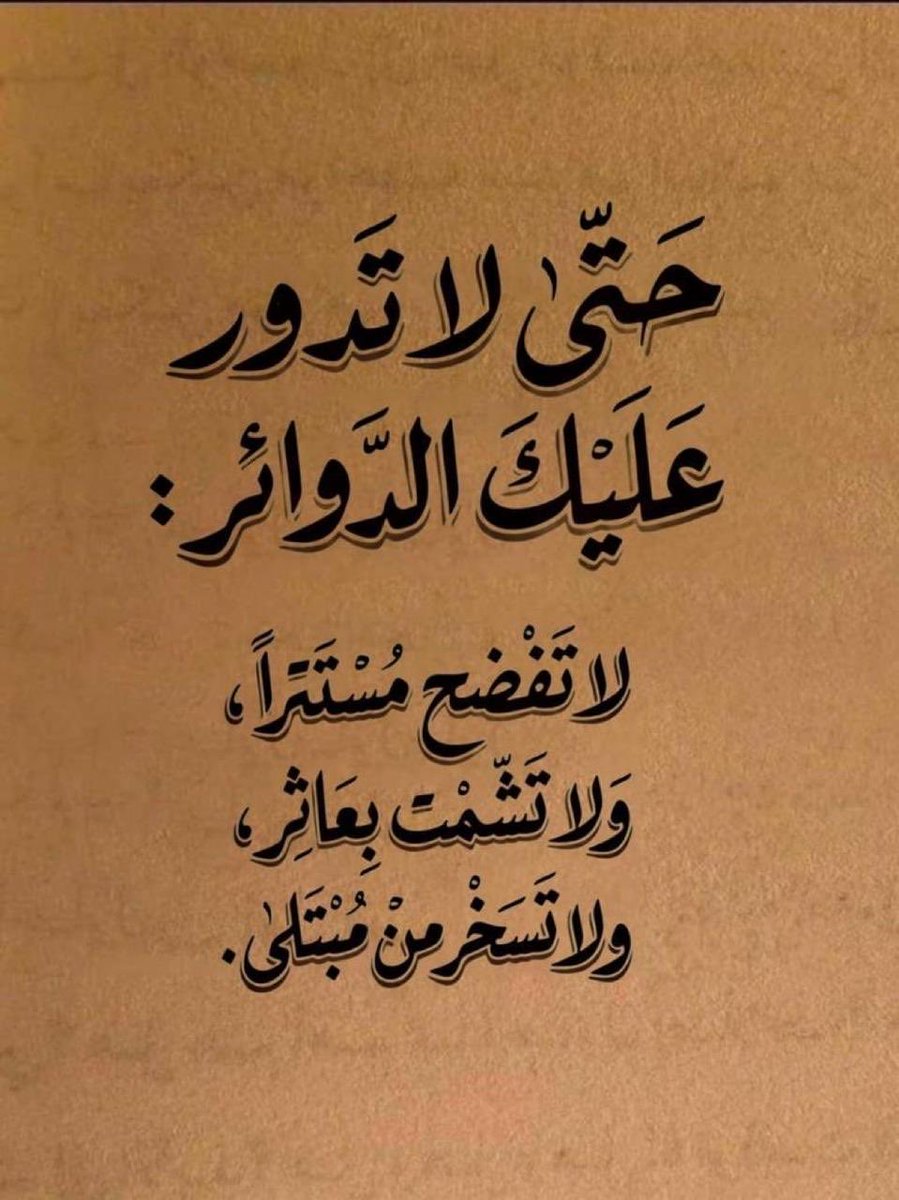 حَتّىٰ لا تَدور
عَلَيْكَ الدَّوائر :
لا تَفْضح مُسْتَتِراً ،
وَلا تَشّمْت بِعَاثِر ،
ولا تَسَخْر منْ مُبْتَلىٰ .